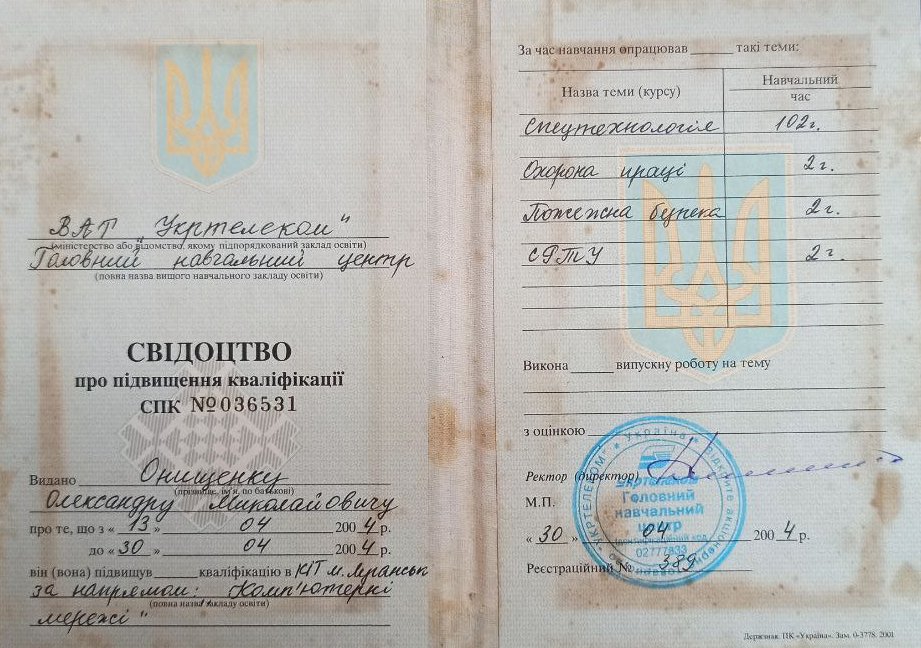 ВАТ „Укртелеком"
(міністерство або відомство, якому підпорядкований заклад освіти)
Головний навчальний центр
(повна назва вищого навчального закладу освіти)
СВІДОЦТВО
про підвищення кваліфікації
СПК №036531
Видано Онищенку
(прізвище, ім'я, по батькові)
Олександру Миколайовичу
про те, що з « 13 » 04 2004 р.
до « 30 » 04 2004 р.
він (вона) підвищув______ кваліфікацію в КІТ м. Луганськ
за напрямом: „Комп'ютерні
(повна назва закладу освіти)
мережі"
За час навчання опрацював______ такі теми:
Назва теми (курсу) Навчальний час
Спецтехнологія 102г.
Охорона праці 2г.
Пожежна безпека 2г.
СРТУ 2г.
Викона______ випускну роботу на тему
з оцінкою
Ректор (директор)
М.П.
« 30 » 04 2004 р.
Реєстраційний № 389
Україна * Відкрите акціонерне товариство "УКРТЕЛЕКОМ" *
Укртелеком
Головний
навчальний
центр
Ідентифікаційний код
02777833
Держзнак. ПК «Україна». Зам. 0-3778. 2001